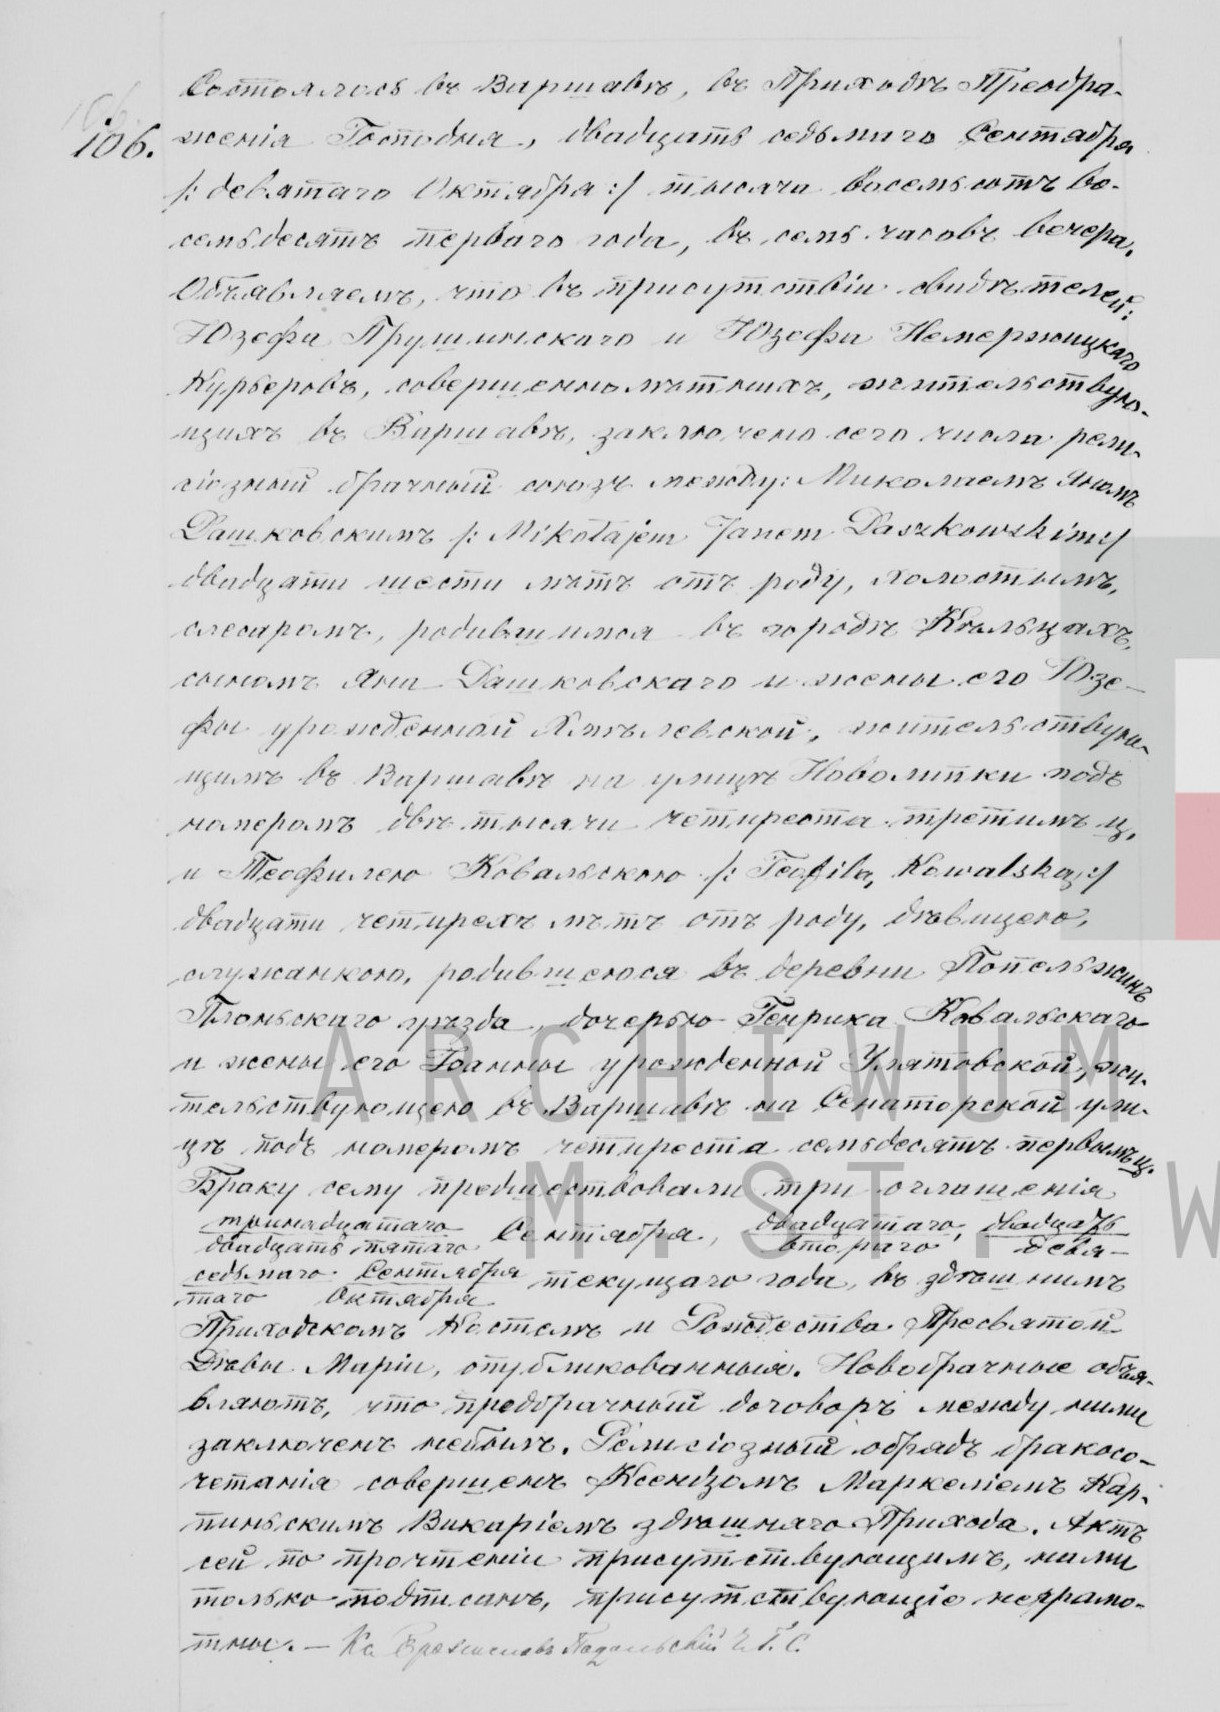 106.
Состоялось въ Варшавѣ, въ Приходѣ Преобра-
женія Господня, двадцать седьмаго Сентября
/: девятаго Октября :/ тысяча восемьсотъ во-
семьдесятъ перваго года, въ семь часовъ вечера.
Объявляемъ, что въ присутствіи свидѣтелей:
Юзефа Прушинскаго и Юзефа Немержицкаго
Курьеровъ, совершеннолѣтнихъ, жительствую-
щихъ въ Варшавѣ, заключено сего числа рели-
гіозный брачный союзъ между: Миколаемъ Яномъ
Дашковскимъ /: Mikołajem Janem Daszkowskim :/
двадцати шести лѣтъ отъ роду, холостымъ,
слесаремъ, родившимся въ городѣ Кѣльцахъ,
сыномъ Яна Дашковскаго и жены его Юзе-
фы урожденной жительствую-
щимъ въ Варшавѣ на улицѣ Новолипки подъ
номеромъ двѣ тысячи четыреста третимъ ц.
и Теофилею Ковальскою /: Teofilą Kowalską :/
двадцати четырехъ лѣтъ отъ роду, дѣвицею,
служанкою, родившеюся въ деревни Попельжинъ
Плоньскаго уѣзда, дочерью Генрика Ковальскаго
и жены его Іоанны урожденной Улятовской, жи-
тельствующею въ Варшавѣ на Сенаторской ули-
цѣ подъ номеромъ четыреста семьдесятъ первымъ ц.
Браку сему предшествовали три оглашенія
тринадцатаго Сентября, двадцатаго, двадцать
двадцать пятаго втораго девя-
седьмаго Сентября текущаго года, въ здѣшнимъ
таго Октября
Приходскомъ Костелѣ и Рождества Пресвятой
Дѣвы Маріи, опубликованныя. Новобрачные объя-
вляютъ, что предбрачный договоръ между ними
заключенъ небылъ. Религіозный обрядъ бракосо-
четанія совершенъ Ксендзомъ Маркеліемъ Кар-
пиньскимъ Викаріемъ здѣшняго Прихода. Актъ
сей по прочтеніи присутствующимъ, нами
только подписанъ, присутствующіе неграмо-
тны. – Кс
ARCHIWUM
M. ST. W